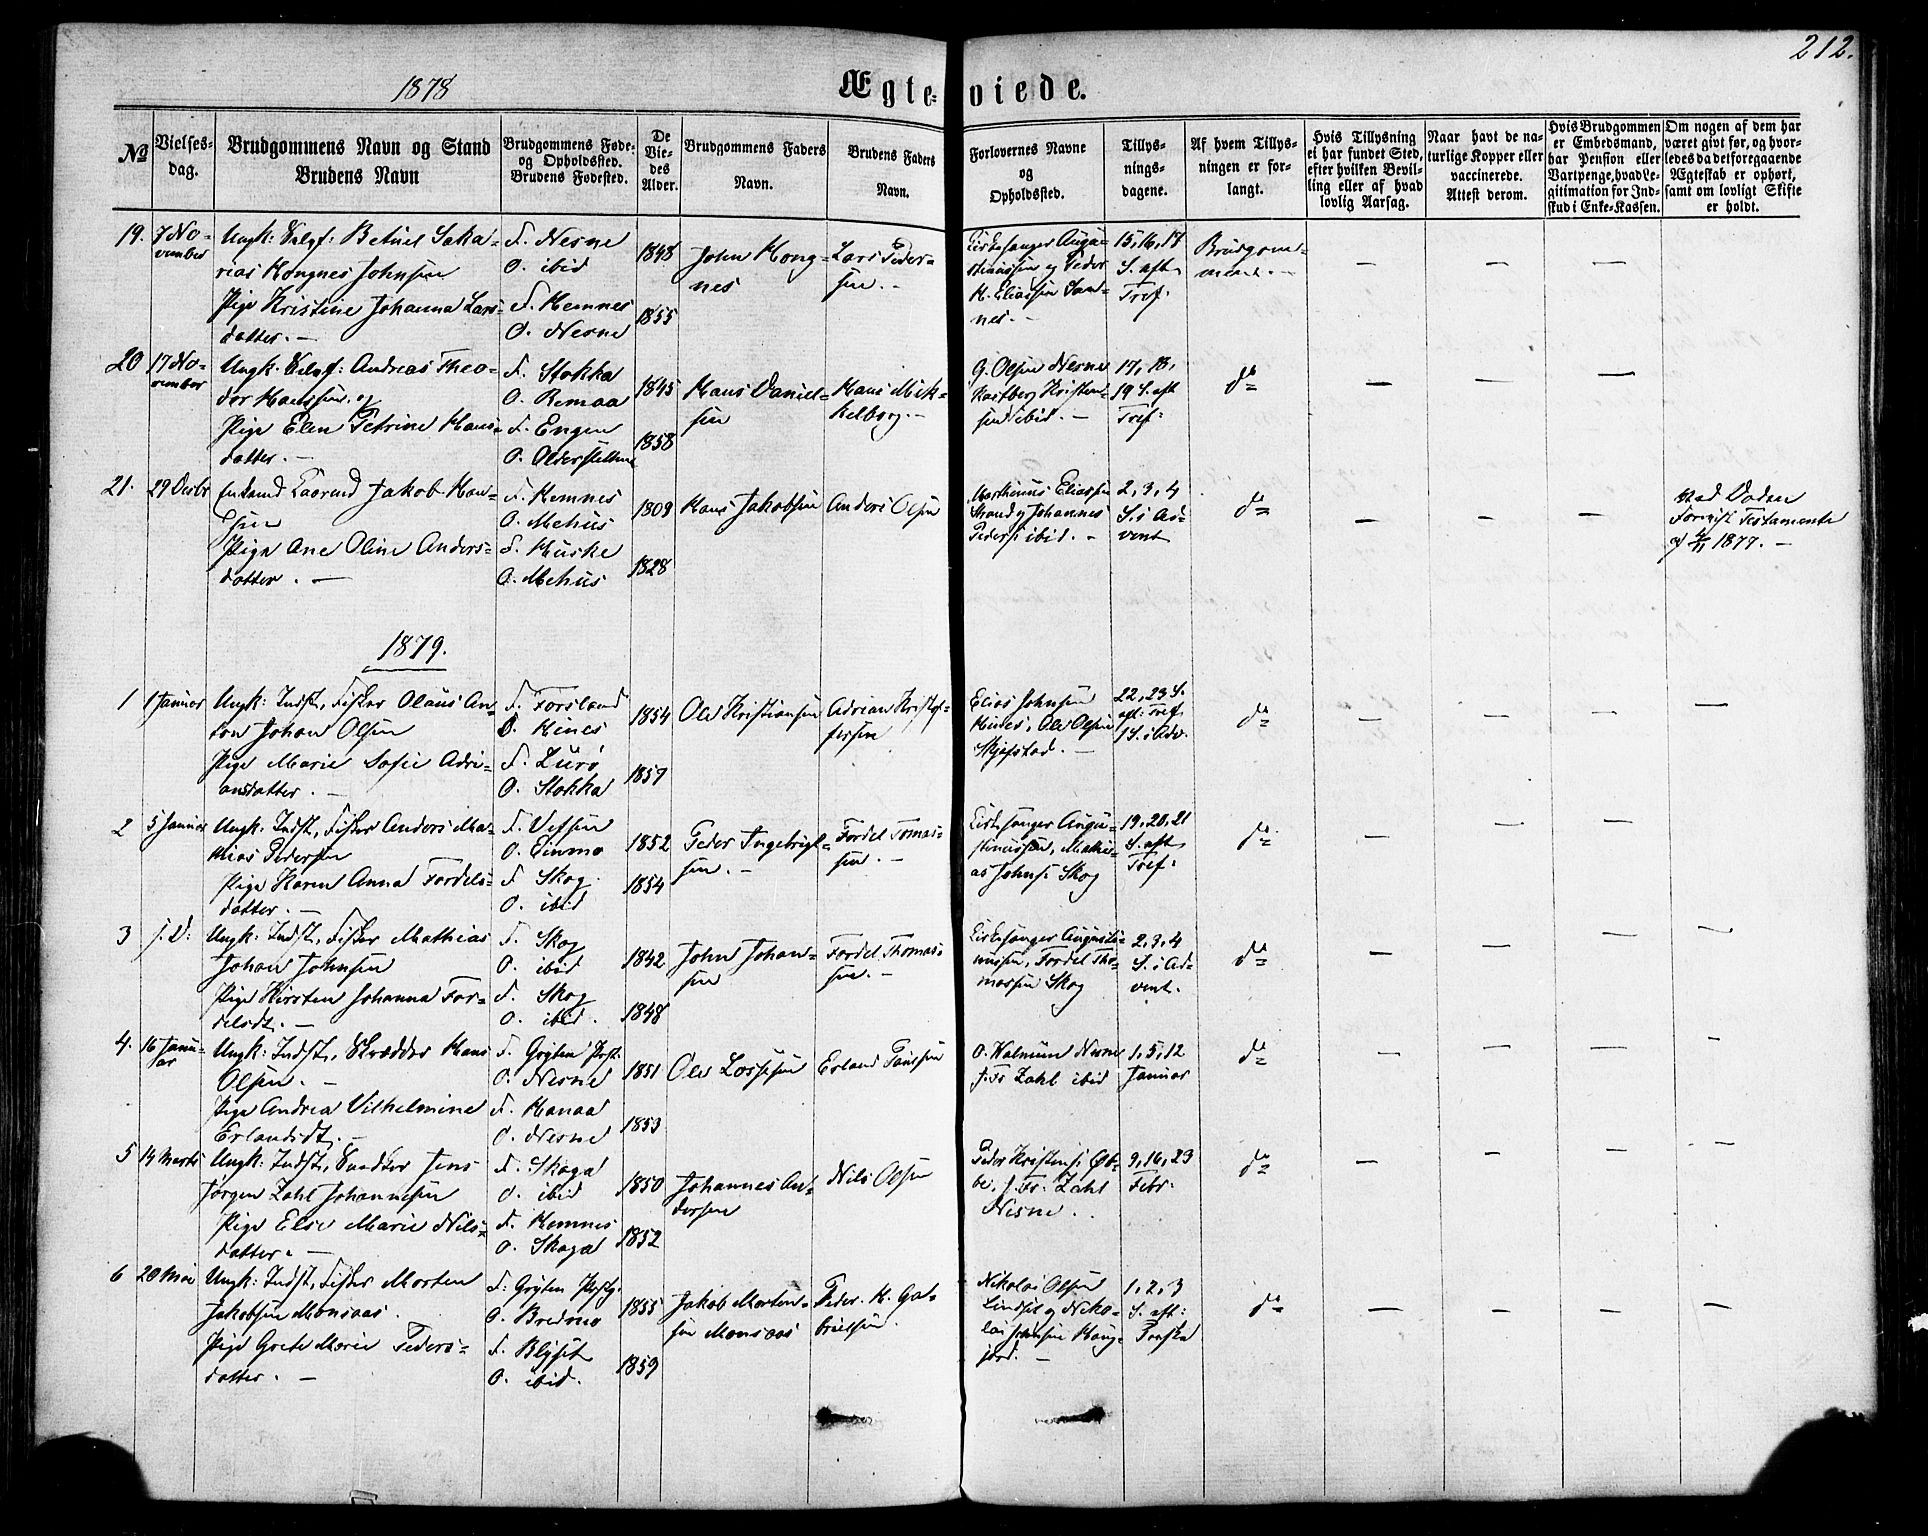 212.
1878
Ægteviede.
№
Vielsesdag.
Brudgommens Navn og Stand
Brudens Navn
Brudgommens Føde-
og Opholdssted.
Brudens Fødested.
De
Vie-
des
Alder.
Brudgommens Faders
Navn.
Brudens Faders
Navn.
Forlovernes Navne
og
Opholdssted.
Tillys-
nings-
dagene.
Af hvem Tillys-
ningen er for-
langt.
Hvis Tillysning
ei har fundet Sted,
efter hvilken Bevil-
ling eller af hvad
lovlig Aarsag.
Naar havt de na-
turlige Kopper eller
vaccinerede.
Attest derom.
Hvis Brudgommen
er Embedsmand,
har Pension eller
Vartpenge, hvad Le-
gitimation for Ind-
skud i Enke-Kassen.
Om nogen af dem har
været givt før, og hvor-
ledes da det foregaaende
Ægteskab er ophørt,
samt om lovligt Skifte
er holdt.
19.
7 No-
vember
Ungk: Selvf: Betuel Saka-
rias Kongnes Johnsen
Pige Kristine Johanna Lars-
datter. —
F. Nesne
O. ibid
F. Hemnes
O. Nesne
1848
1855
John Kong-
nes
Lars Peder-
sen. -
Kirkesanger Augu-
stinussen og Peder
H. Eliassen Sand-
nes. -
15, 16, 17
S. aft
Tref.
Brudgom-
men. -
20
17 No-
vember
Ungk. Selvf: Andreas Theo-
dor Hanssen og
Pige Elen Petrine Hans-
datter. —
F. Stokka
O. Remaa
F. Engen
O.
1845
1858
Hans Daniel-
sen
Hans Mik-
kelborg. -
G. Olsen Nesne
Kristen-
sen ibid. —
17, 18,
19 S. aft
Tref:
do
21.
29 Decbr
Enkemd Jakob Han-
sen
Pige Ane Oline Anders-
datter. —
F. Hemnes
O. Mehus
F. Huske
O. Mehus
1809
1828
Hans Jakobsen
Anders Olsen
Marthinus Eliassen
Strand og Johannes
Peders. ibid. -
2, 3, 4
S. i Ad-
vent
do
Ved Døden
Testamente
1877. —
1879.
1
1 Januar
Ungk: Indst, Fisker Olaus An-
ton Johan Olsen
Pige Marie Sofie Adri-
ansdatter. —
F. Forsland
O. Hines
F. Lurø
O. Stokka
1854
1857
Ole Kristiansen
Adrian Kristof-
fersen
Elias Johnsen
Hines, Ole Olsen
Skjefstad. —
22, 23 S.
aft: Tref.
1 S. i Adv.
do
2
5 Januar
Ungk: Indst, Fisker Anders Ma-
thias Pedersen
Pige Karen Anna Fordels-
datter. —
F. Vefsen
O. Einmo
F. Skog
O. ibid
1852
1854
Peder Ingebrigt-
sen. -
Fordel Tomas-
sen. -
Kirkesanger Augu-
stinussen, Mathi-
as Johns. Skog
19, 20, 21
S. aft
Tref:
do
3
s. D:
Ungk: Indst, Fisker Mathias
Johan Johnsen
Pige Kirsten Johanna For-
delsdt. —
F. Skog
O. ibid
F. Skog
O. ibid.
1842
1848
John Johan-
sen
Fordel Thomas-
sen. -
Kirkesanger Augusti-
nussen, Fordel Tho-
massen Skog
2, 3, 4
S. i Ad-
vent.
do
4.
16 Janu-
ar
Ungk: Indst, Skrædder Hans
Olsen. —
Pige Andrea Vilhelmine
Erlandsdt. —
F. Gryten Prst.
O. Nesne
F. Hanaa
O. Nesne
1851
1853
Ole Larssen
Erland Paulsen
O. Nesne
J. Fr Zahl ibid
1, 5, 12
Januar
do
5
14 Marts
Ungk: Indst, Jens
Jørgen Zahl Johannesen
Pige Else Marie Nils-
datter. —
F. Skaga
O. ibid
F. Hemnes
O. Skaga
1850
1852
Johannes An-
dersen
Nils Olsen
Peder Kristens.
J. Fr. Zahl
Nesne.
9, 16, 23
Febr.
do
6
20 Mai
Ungk: Indst, Fisker Morten
Jakobsen Monsaas.
Pige Grete Marie Peders-
datter. —
F: Gryten Prstg.
O. Bredmo
F. Blysit
O. ibid.
1855
1859
Jakob Morten-
sen Monsaas
Peder H. Ga-
brielsen.
Nikolai Olsen
og Niko-
lai Johnsen Haug-
jord. —
1, 2, 3
S. aft:
Paaske
do